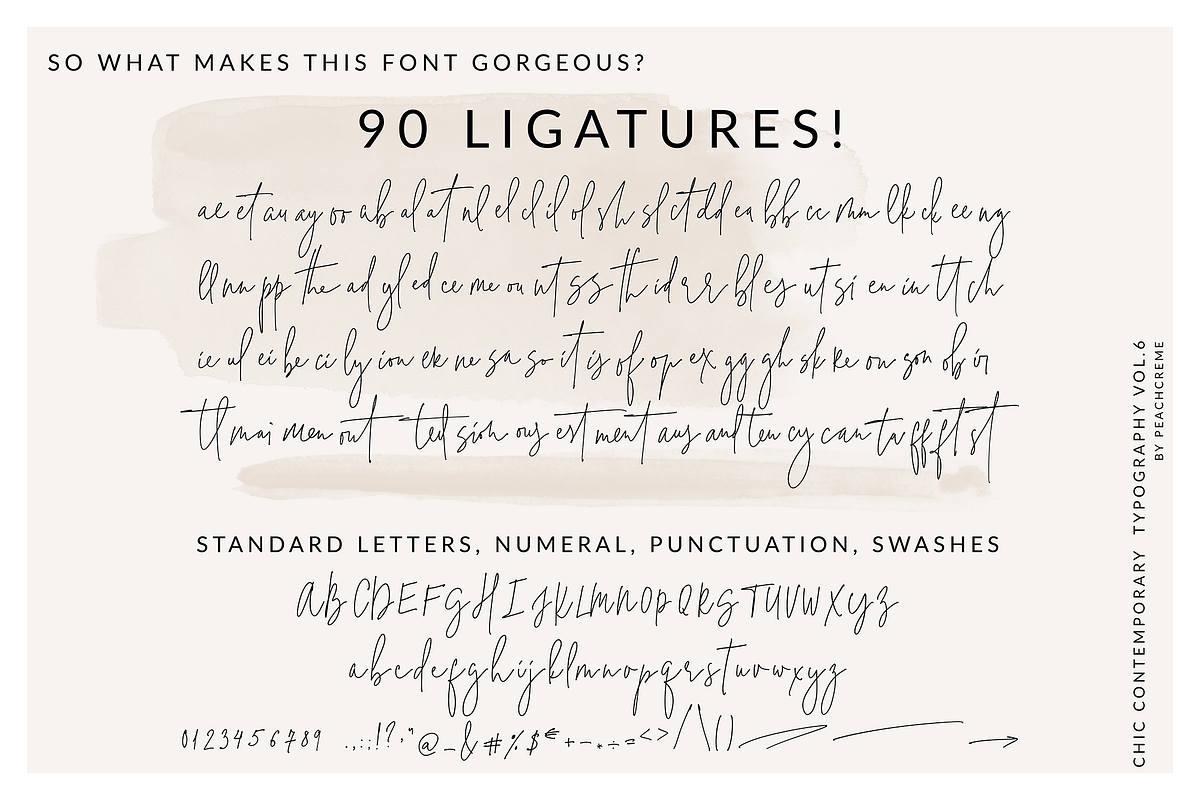 SO WHAT MAKES THIS FONT GORGEOUS?
90 LIGATURES!
ae et au ay oo ab al at nl el cl il ol sh sl ct dd ea bb cc mm lk ck ee ng
ll nn pp the ad yl ed ce me ou nt ss th id rr bl es ut si en in tt ch
ie ul ei be ci ly ion ek ne sa so it is of op ex gg gh sk ke on son ob ir
tl mai men out ted sion ous est ment aus and ten cy can ta ff ft st
STANDARD LETTERS, NUMERAL, PUNCTUATION, SWASHES
ABCDEFGHIJKLMNOPQRSTUVWXYZ
abcdefghijklmnopqrstuvwxyz
0123456789 .,:;!?'"@_&#%$€+-*÷=<>/\()
CHIC CONTEMPORARY TYPOGRAPHY VOL.6
BY PEACHCREME